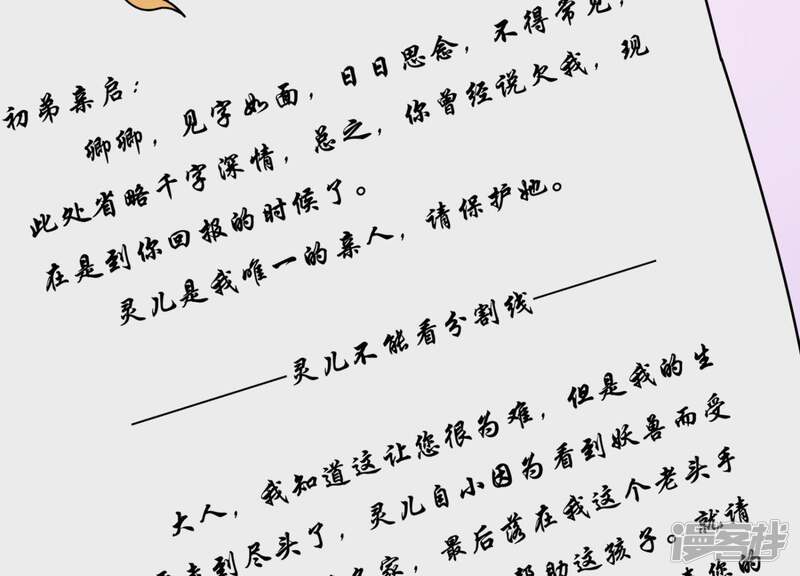 初弟亲启：
卿卿，见字如面，日日思念，不得常见，
此处省略千字深情，总之，你曾经说欠我，现
在是到你回报的时候了。
灵儿是我唯一的亲人，请保护她。
灵儿不能看分割线
大人，我知道这让您很为难，但是我的生
走到尽头了，灵儿自小因为看到妖兽而受
家，最后落在我这个老头手
帮助这孩子。就请
您的
漫客栈